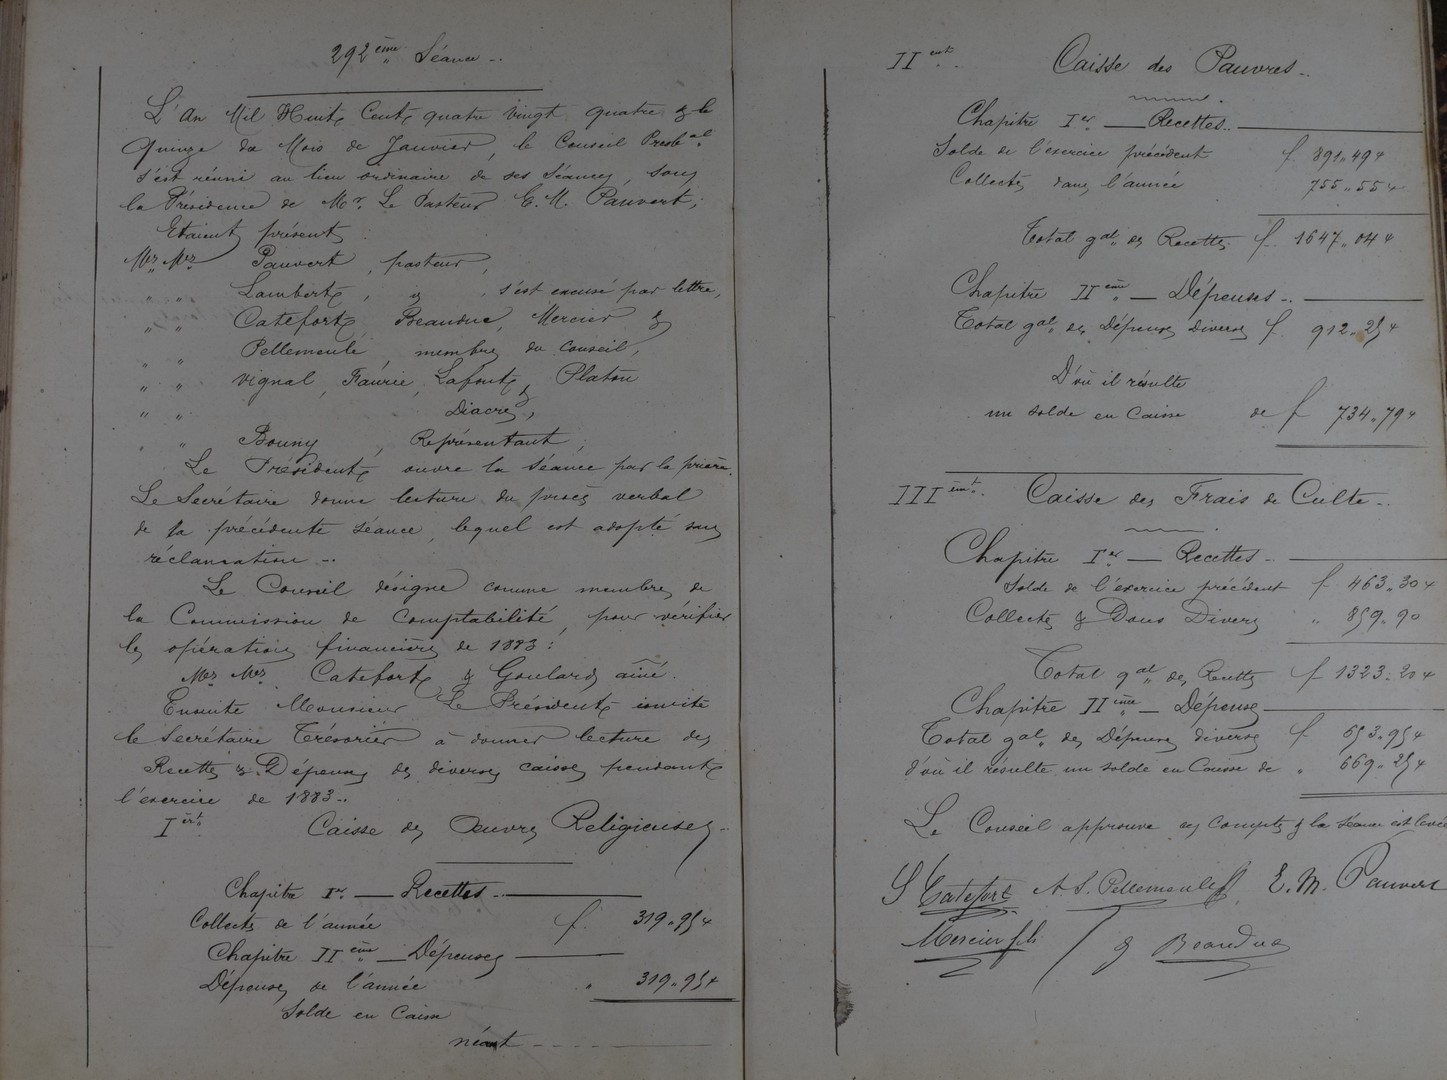 292ème Séance -.
L'an Mil Huit Cent quatre vingt quatre & le
quinze du Mois de Janvier, le Conseil Presbal
s'est réuni au lieu ordinaire de ses Séances, sous
la Présidence de Mr. Le Pasteur E. M. Pauvert;
Etaient présents
Mrs Mrs Pauvert, pasteur,
" " Lambert, id, s'est excusé par lettre,
" " Catefort, Beauduc, Mercier &
" " Pellemeule, membres du conseil,
" " Vignal, Faurie, Lafont, & Platon
" " Diacres,
" " Bouny, Représentant;
Le Président ouvre la séance par la prière.
Le Secrétaire donne lecture du procès verbal
de la précédente séance, lequel est adopté sans
réclamation -.
Le Conseil désigne comme membres de
la Commission de Comptabilité, pour vérifier
les opérations financières de 1883:
Mrs Mrs Catefort & Goulard ainé.
Ensuite Monsieur Le Président invite
le Secrétaire Trésorier à donner lecture des
Recettes & Dépenses des diverses caisses pendant
l'exercice de 1883-.
Ient Caisse des Œuvres Religieuses -.
Chapitre Ier. — Recettes -.
Collectes de l'année f. 319.95 "
Chapitre IIème — Dépenses
Dépenses de l'année " 319.95 "
Solde en Caisse
néant - - - -
IIent. - Caisse des Pauvres -.
Chapitre Ier. — Recettes -.
Solde de l'exercice précédent f 891.49 "
Collectes dans l'année 755.55 "
Total gal des Recettes f. 1647.04 "
Chapitre IIème — Dépenses -.
Total gal des Dépenses diverses f 912.25 "
D'où il résulte
un solde en Caisse de f 734.79 "
IIIent. Caisse des Frais de Culte -.
Chapitre Ier — Recettes -.
Solde de l'exercice précédent f 463.30 "
Collectes & Dons Divers " 859.90
Total gal des Recettes f 1323.20 "
Chapitre IIème — Dépenses
Total gal des Dépenses diverses f 653.95 "
d'où il résulte un solde en Caisse de " 669.25 "
Le Conseil approuve ces comptes & la séance est levée
S Catefort A. S. Pellemeule E. M. Pauvert
Mercier fils Beauduc